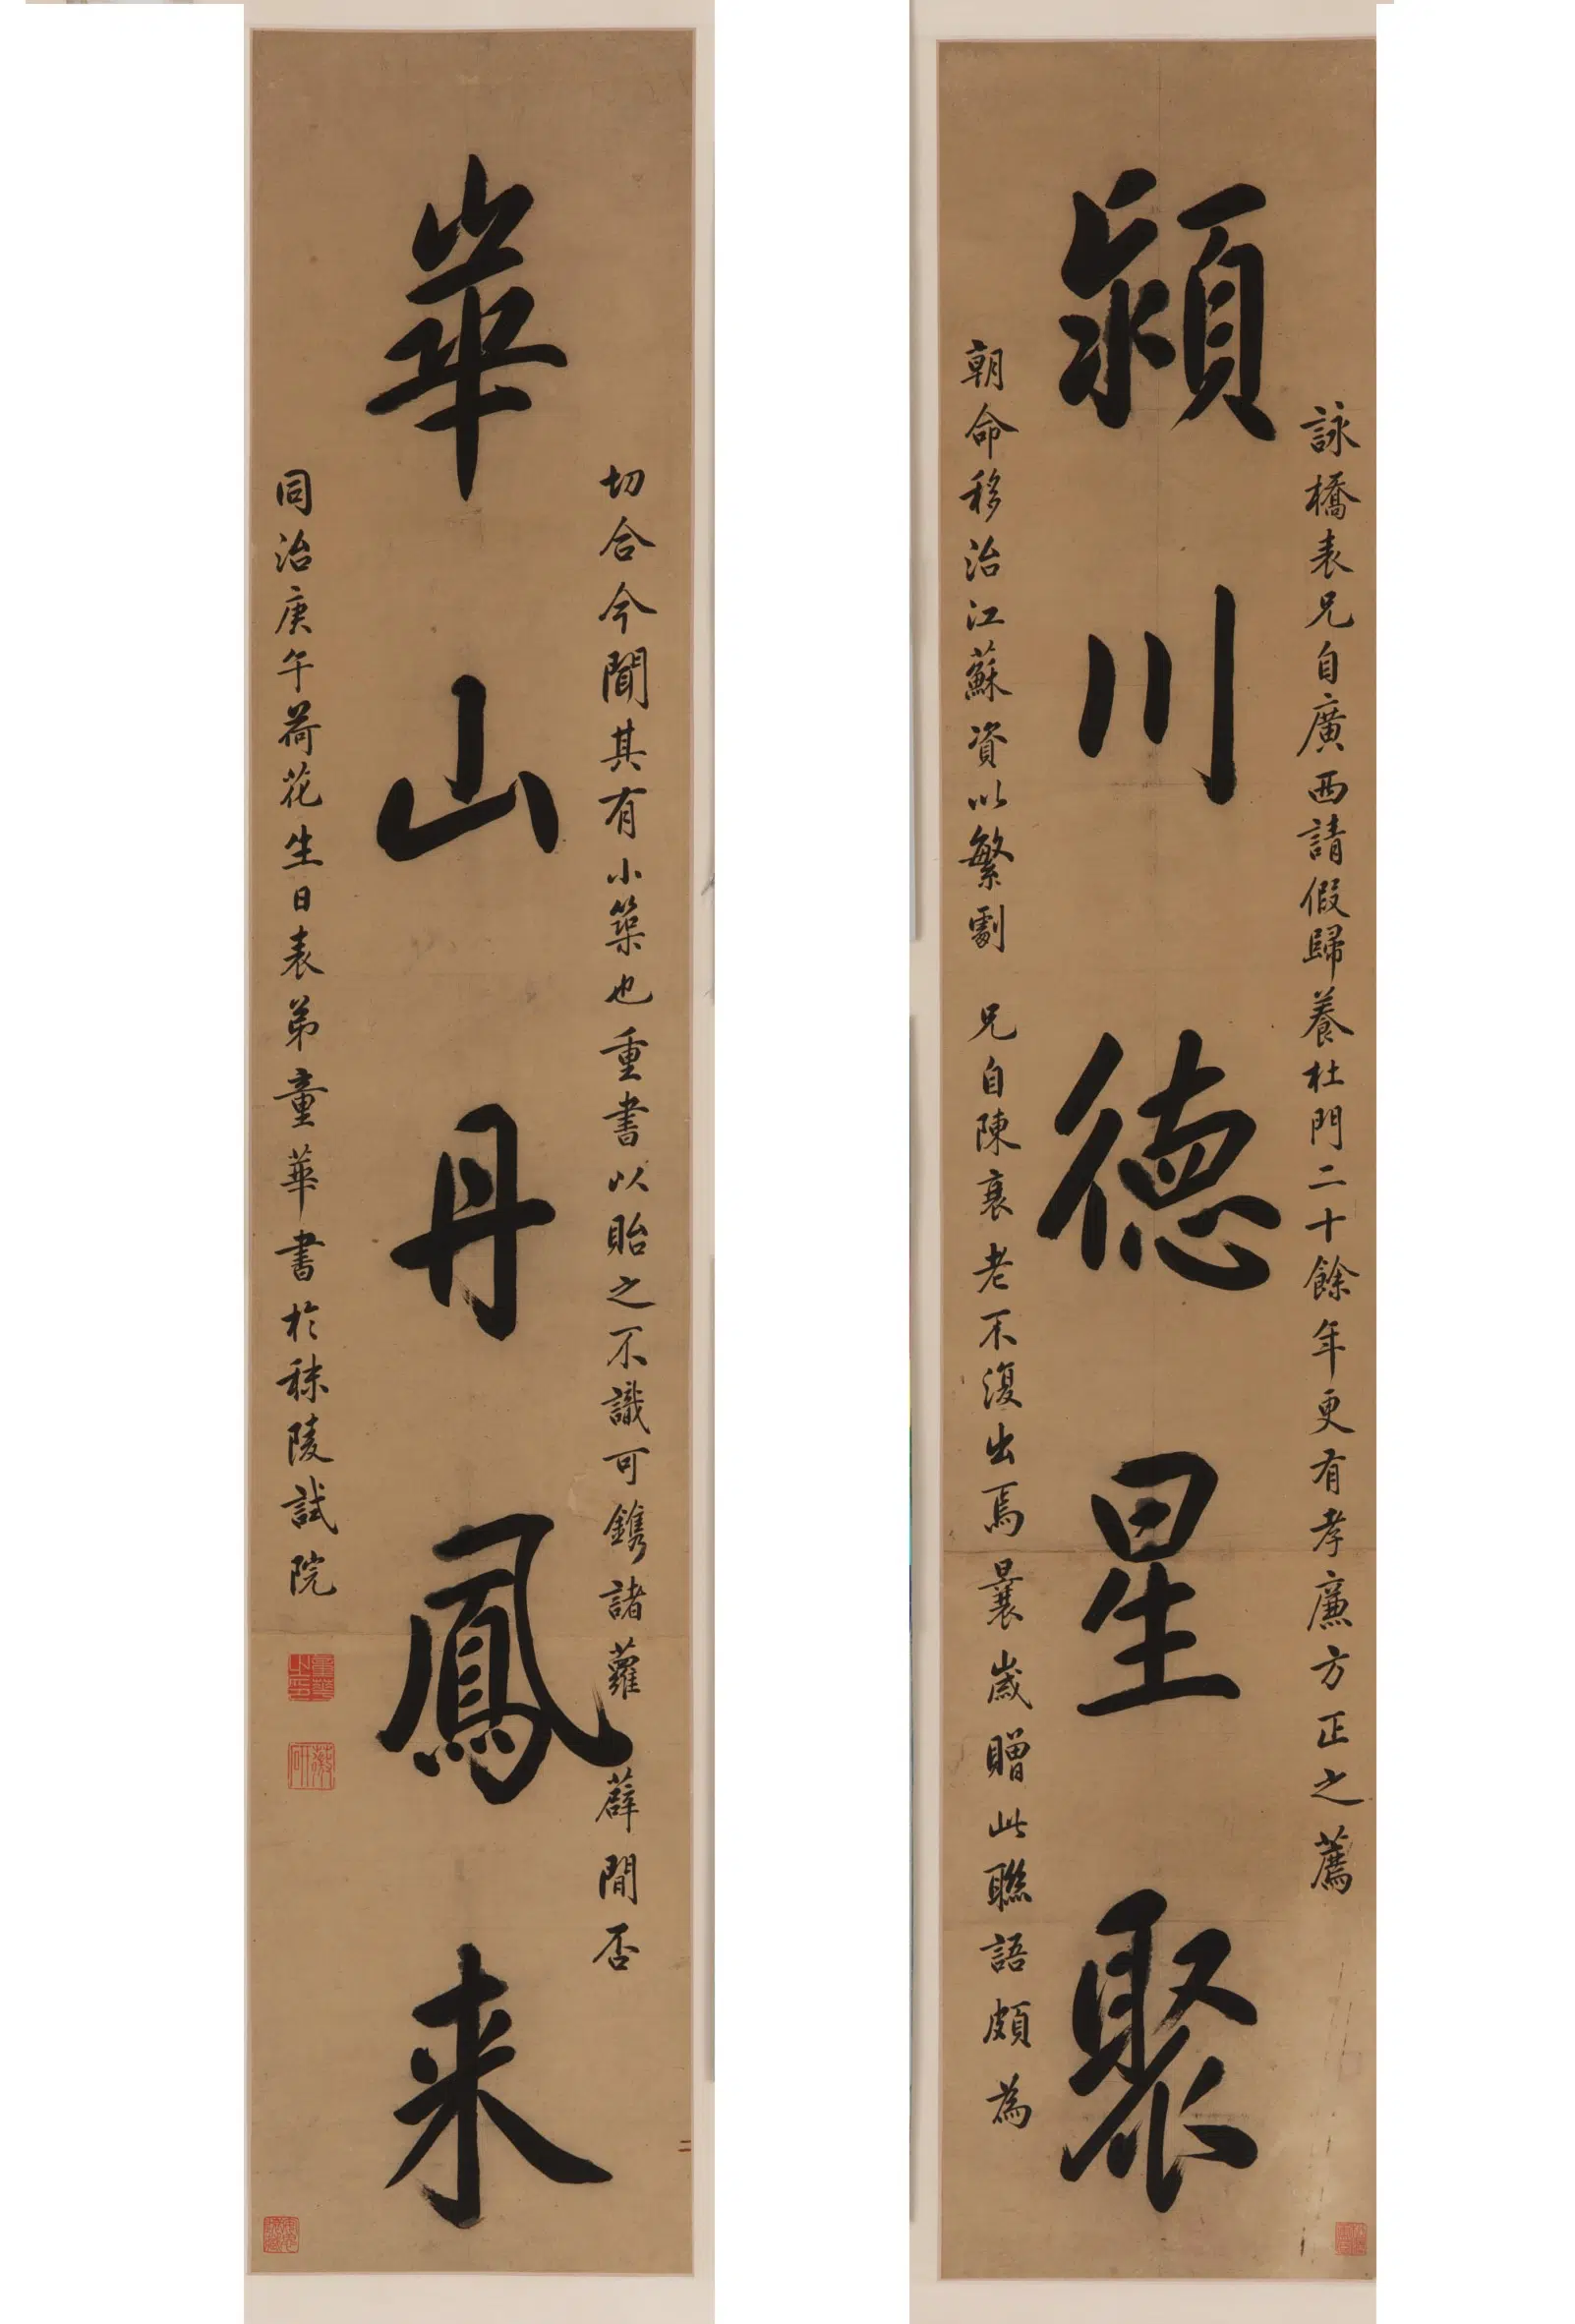 潁川德星聚
詠橋表兄自廣西請假歸養杜門二十餘年更有孝廉方正之薦
朝命移治江蘇資以繁劇 兄自陳衰老不復出焉曩歲贈此聯語頗為
華山丹鳳来
切合今聞其有小築也重書以貽之不識可鐫諸蘿薜間否
同治庚午荷花生日表弟童華書於秣陵試院
童華之印
二